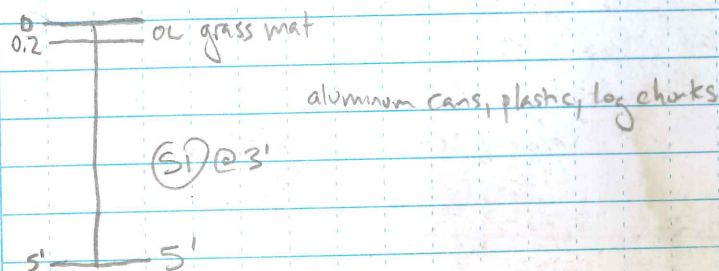 0 OL grass mat
0.2
aluminum cans, plastic, log chunks
S1 @ 3'
5' 5'